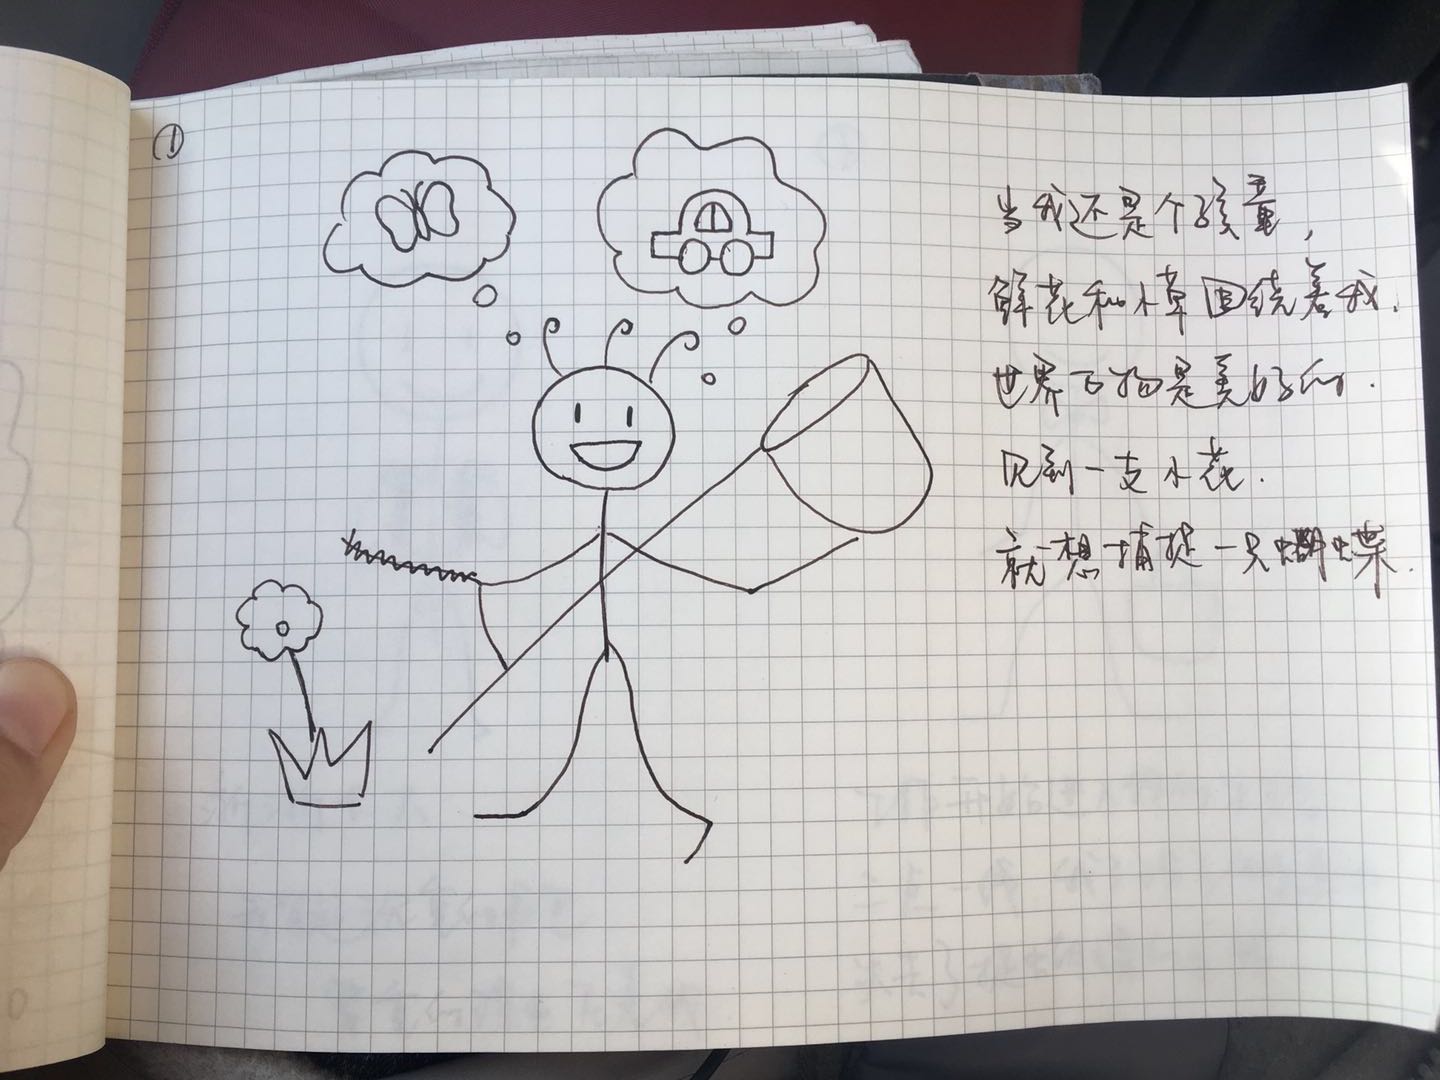 ①
当我还是个孩童,
鲜花和小草围绕着我.
世界万物是美好的.
见到一支小花.
就想捕捉一只蝴蝶.